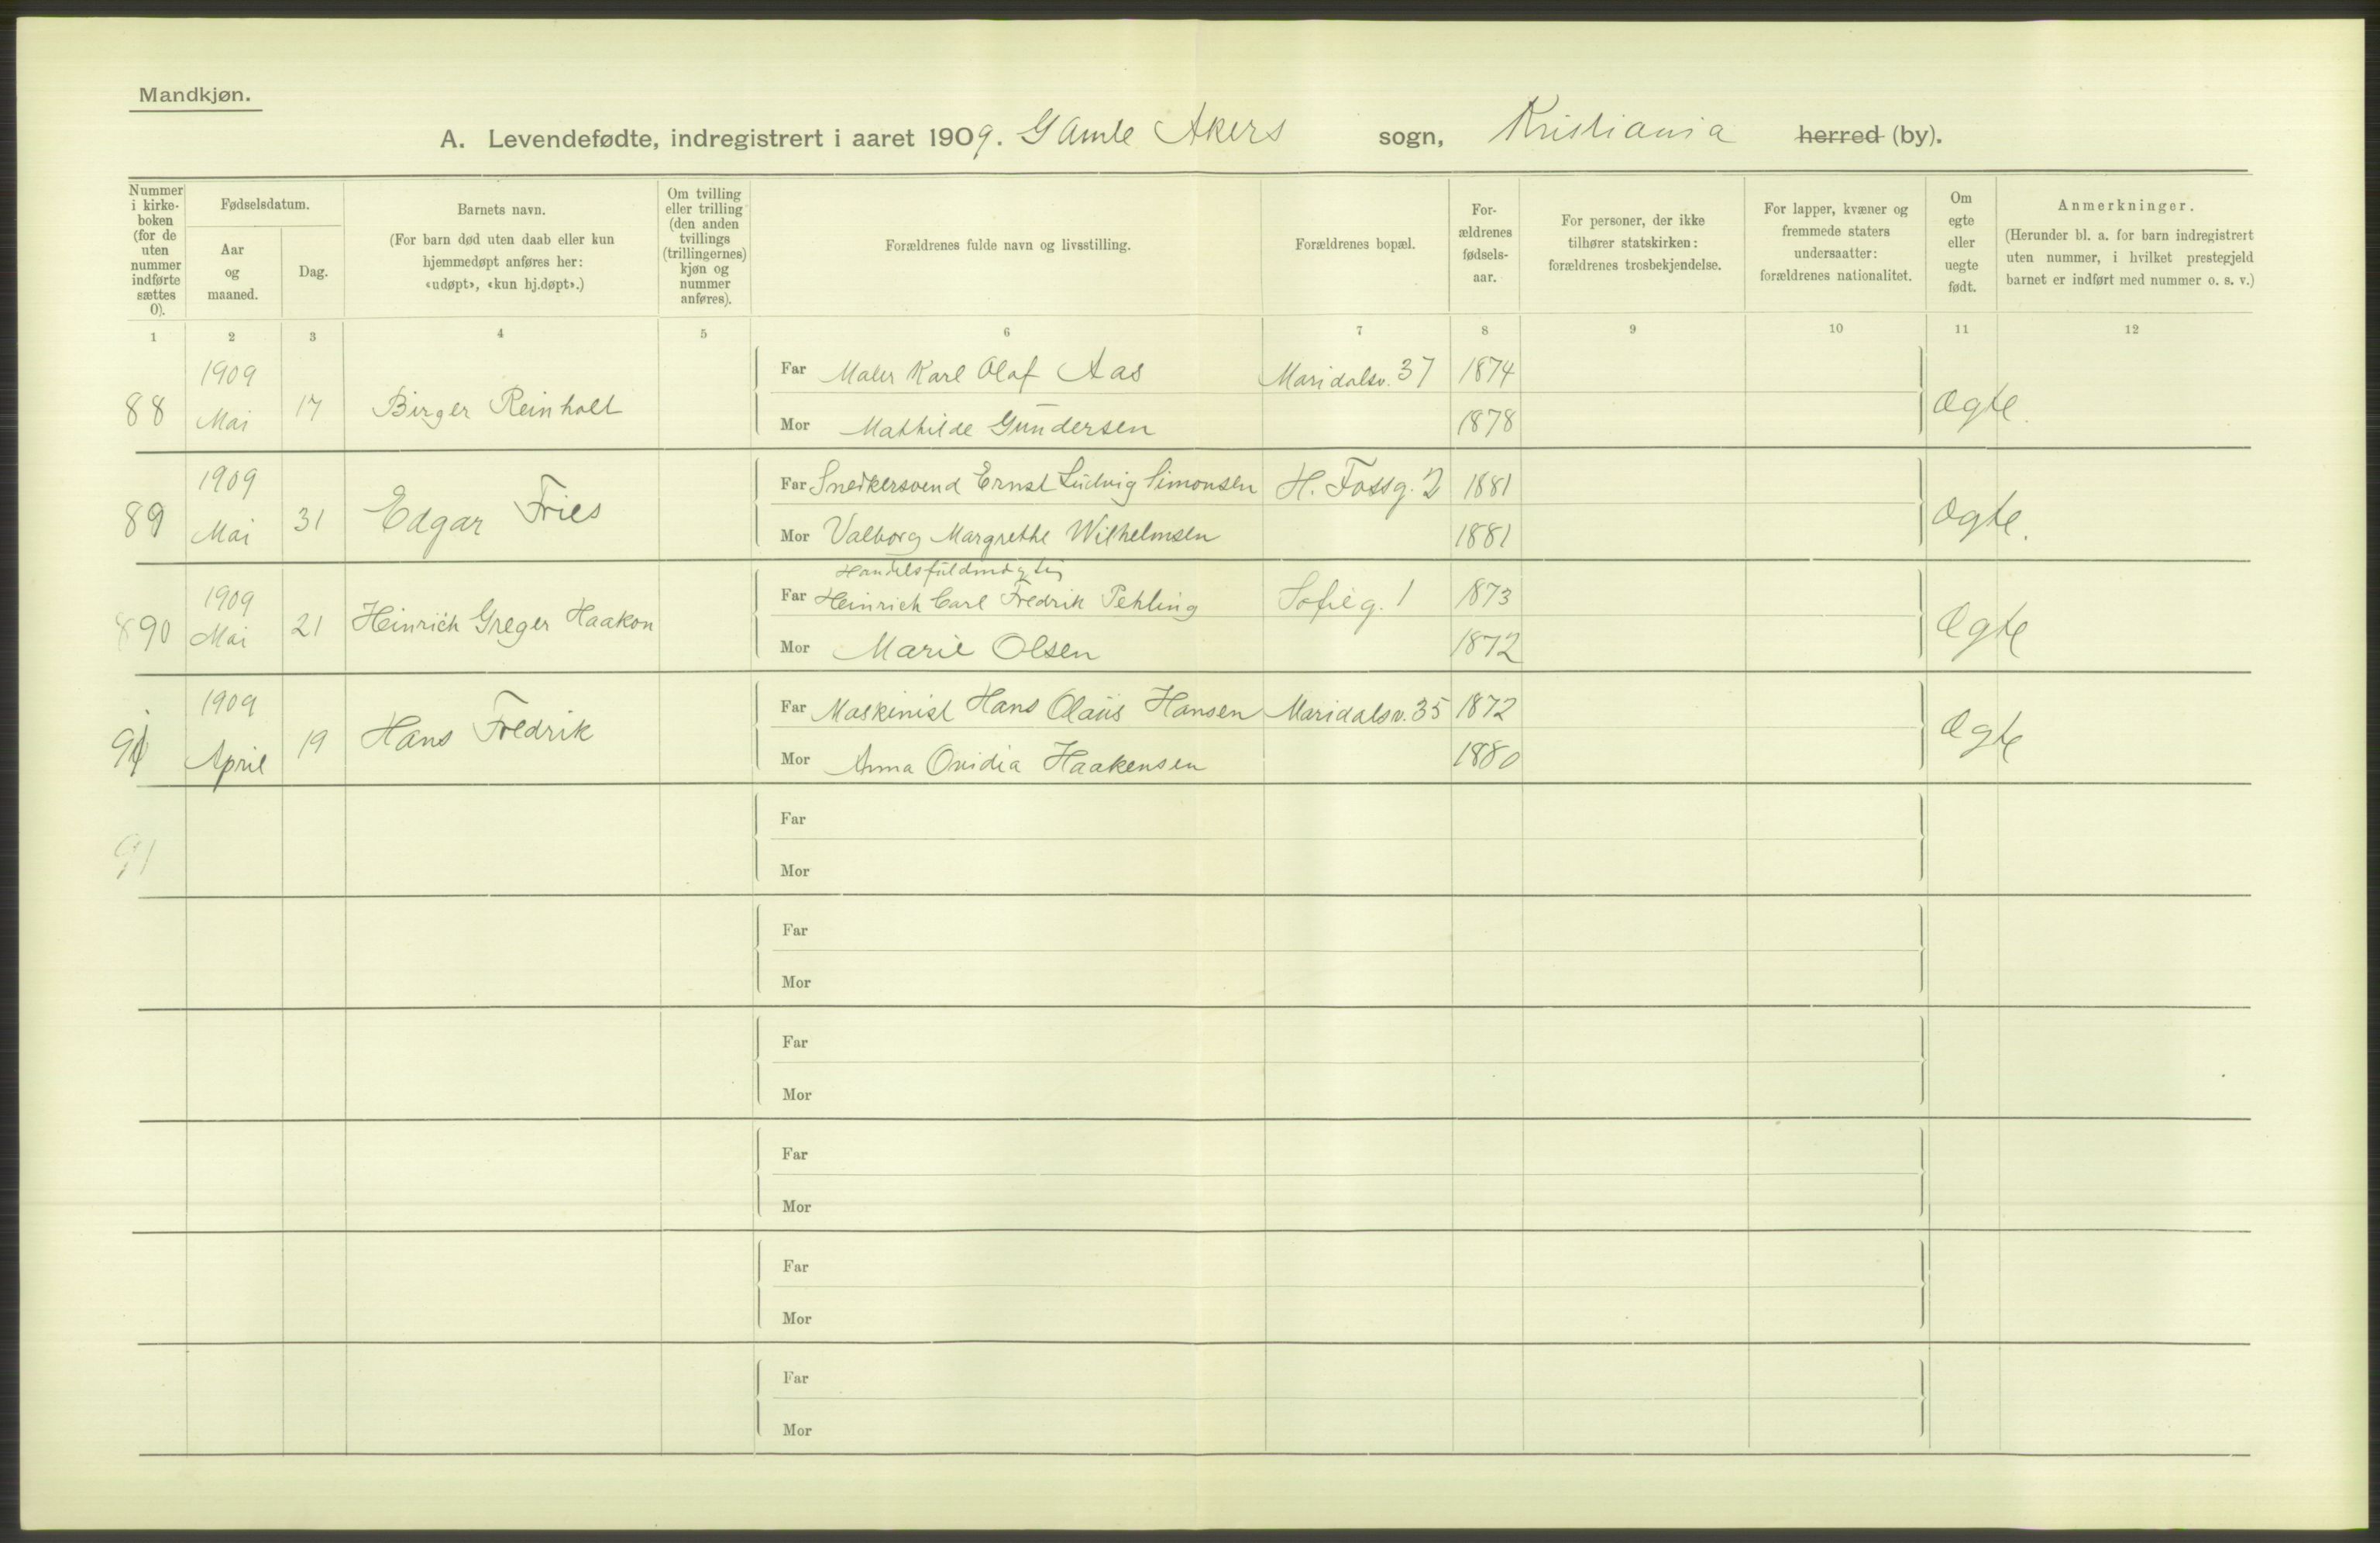 Mandkjøn.
A. Levendefødte, indregistrert i aaret 1909. Gamle Akers sogn, Kristiania herred (by).
Nummer i kirke- boken (for de uten nummer indførte sættes 0).
Fødselsdatum.
Aar og maaned.
Dag.
Barnets navn.
(For barn død uten daab eller kun hjemmedøpt anføres her: «udøpt», «kun hj.døpt».)
Om tvilling eller trilling (den anden tvillings (trillingernes) kjøn og nummer anføres).
Forældrenes fulde navn og livsstilling.
Forældrenes bopæl.
For- ældrenes fødsels- aar.
For personer, der ikke tilhører statskirken: forældrenes trosbekjendelse.
For lapper, kvæner og fremmede staters undersaatter: forældrenes nationalitet.
Om egte eller uegte født.
Anmerkninger.
(Herunder bl. a. for barn indregistrert uten nummer, i hvilket prestegjeld barnet er indført med nummer o. s. v.)
1 2 3 4 5 6 7 8 9 10 11 12
88 1909 Mai 17 Birger Reinholt
Far Maler Karl Olaf Aas Maridalsv. 37 1874
Mor Mathilde Gundersen 1878
Ægte.
89 1909 Mai 31 Edgar Fries
Far Snedkersvend Ernst Ludvig Simonsen H. Fossg. 2 1881
Mor Valborg Margrethe Wilhelmsen 1881
Ægte.
890 1909 Mai 21 Heinrich Greger Haakon
Handelsfuldmægtig
Far Heinrich Carl Fredrik Pehling Sofieg. 1 1873
Mor Marie Olsen 1872
Ægte
91 1909 April 19 Hans Fredrik
Far Maskinist Hans Olaus Hansen Maridalsv. 35 1872
Mor Anna Ovidia Haakensen 1880
Ægte
91
Far
Mor
Far
Mor
Far
Mor
Far
Mor
Far
Mor
Far
Mor